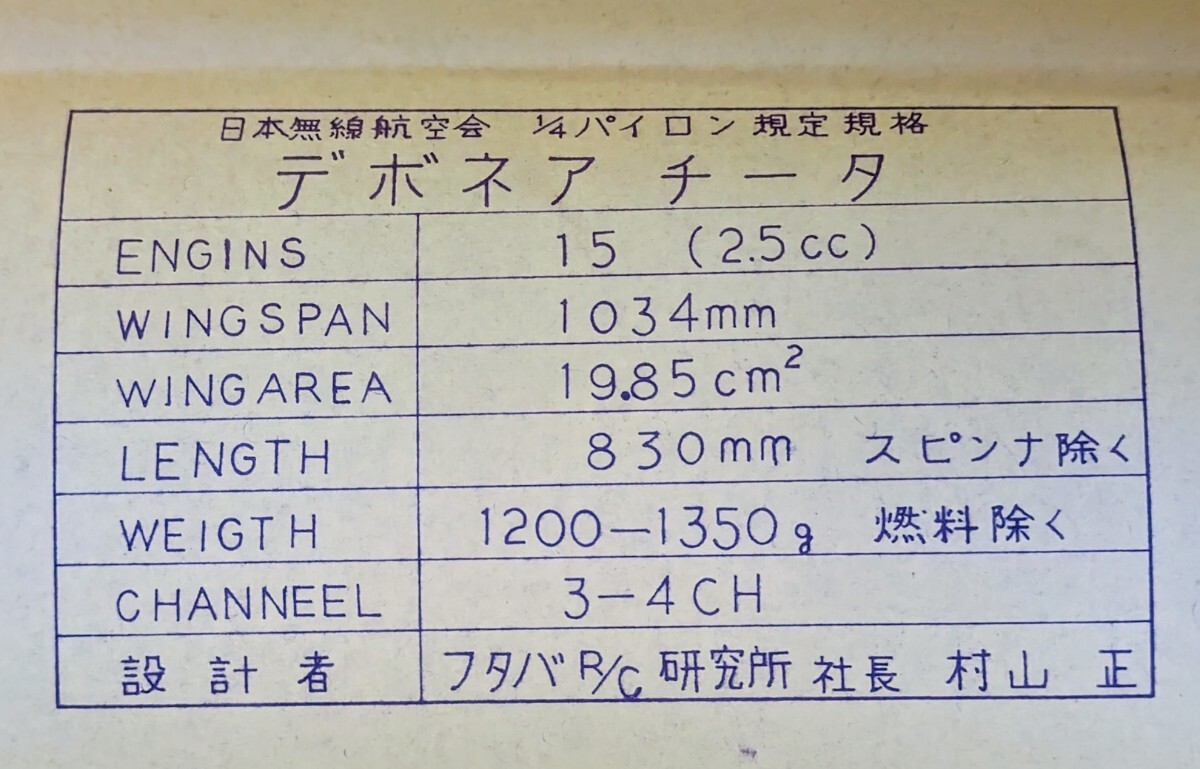 日本無線航空会 1/4パイロン規定規格
デボネア チータ
ENGINS 15 (2.5cc)
WINGSPAN 1034mm
WINGAREA 19.85cm²
LENGTH 830mm スピンナ除く
WEIGTH 1200-1350g 燃料除く
CHANNEEL 3-4CH
設計者 フタバR/C研究所 社長 村山 正